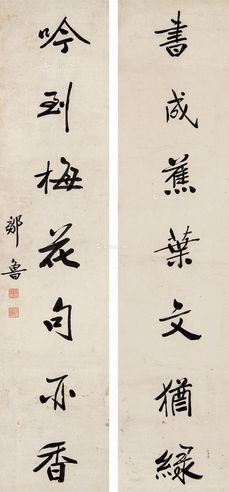 書成蕉葉文猶綠
吟到梅花句亦香
鄒魯